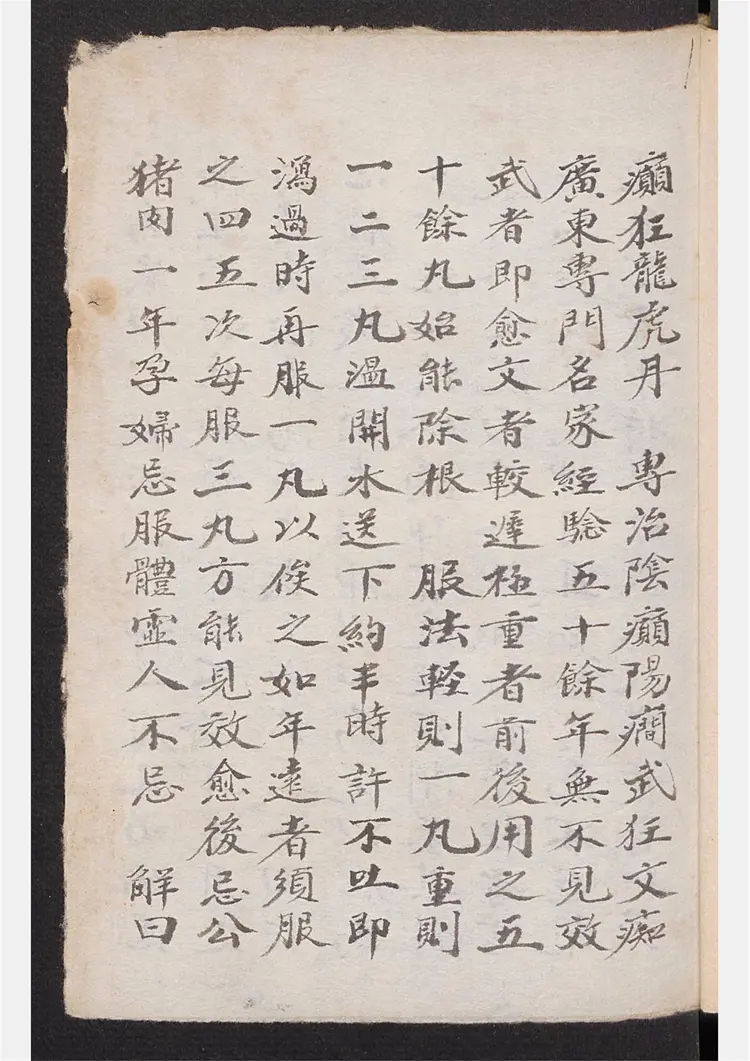 癲狂龍虎丹　專治陰癲陽癇武狂文痴
廣東專門名家經驗五十餘年無不見效
武者即愈文者較遲極重者前後用之五
十餘丸始能除根　服法輕則一丸重則
一二三丸溫開水送下約半時許不吐即
瀉過時再服一丸以俟之如年遠者須服
之四五次每服三丸方能見效愈後忌公
猪肉一年孕婦忌服體虛人不忌　解曰